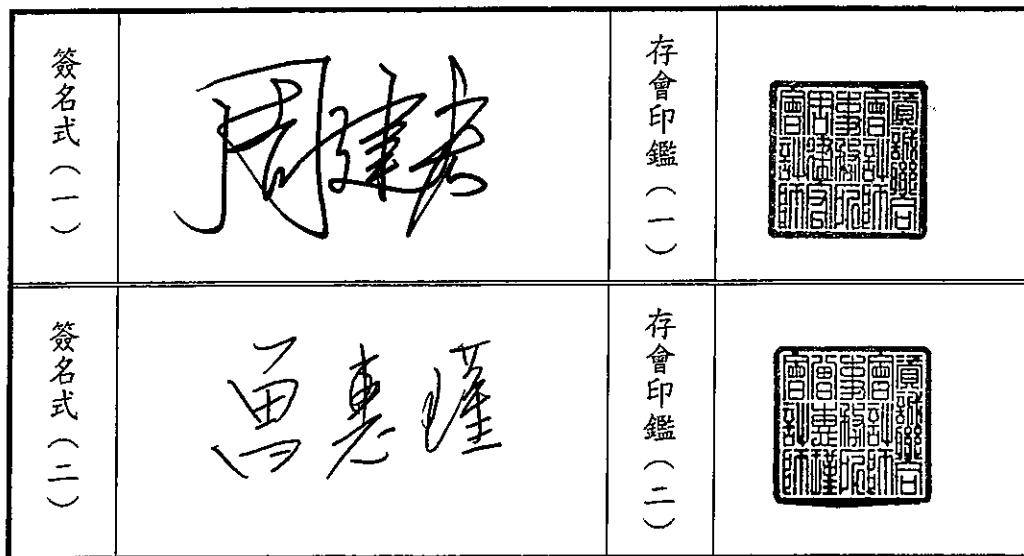 簽名式（一）
周建宏
存會印鑑（一）
資誠聯合
會計師
事務所
周建宏
會計師
簽名式（二）
曾惠瑾
存會印鑑（二）
資誠聯合
會計師
事務所
曾惠瑾
會計師